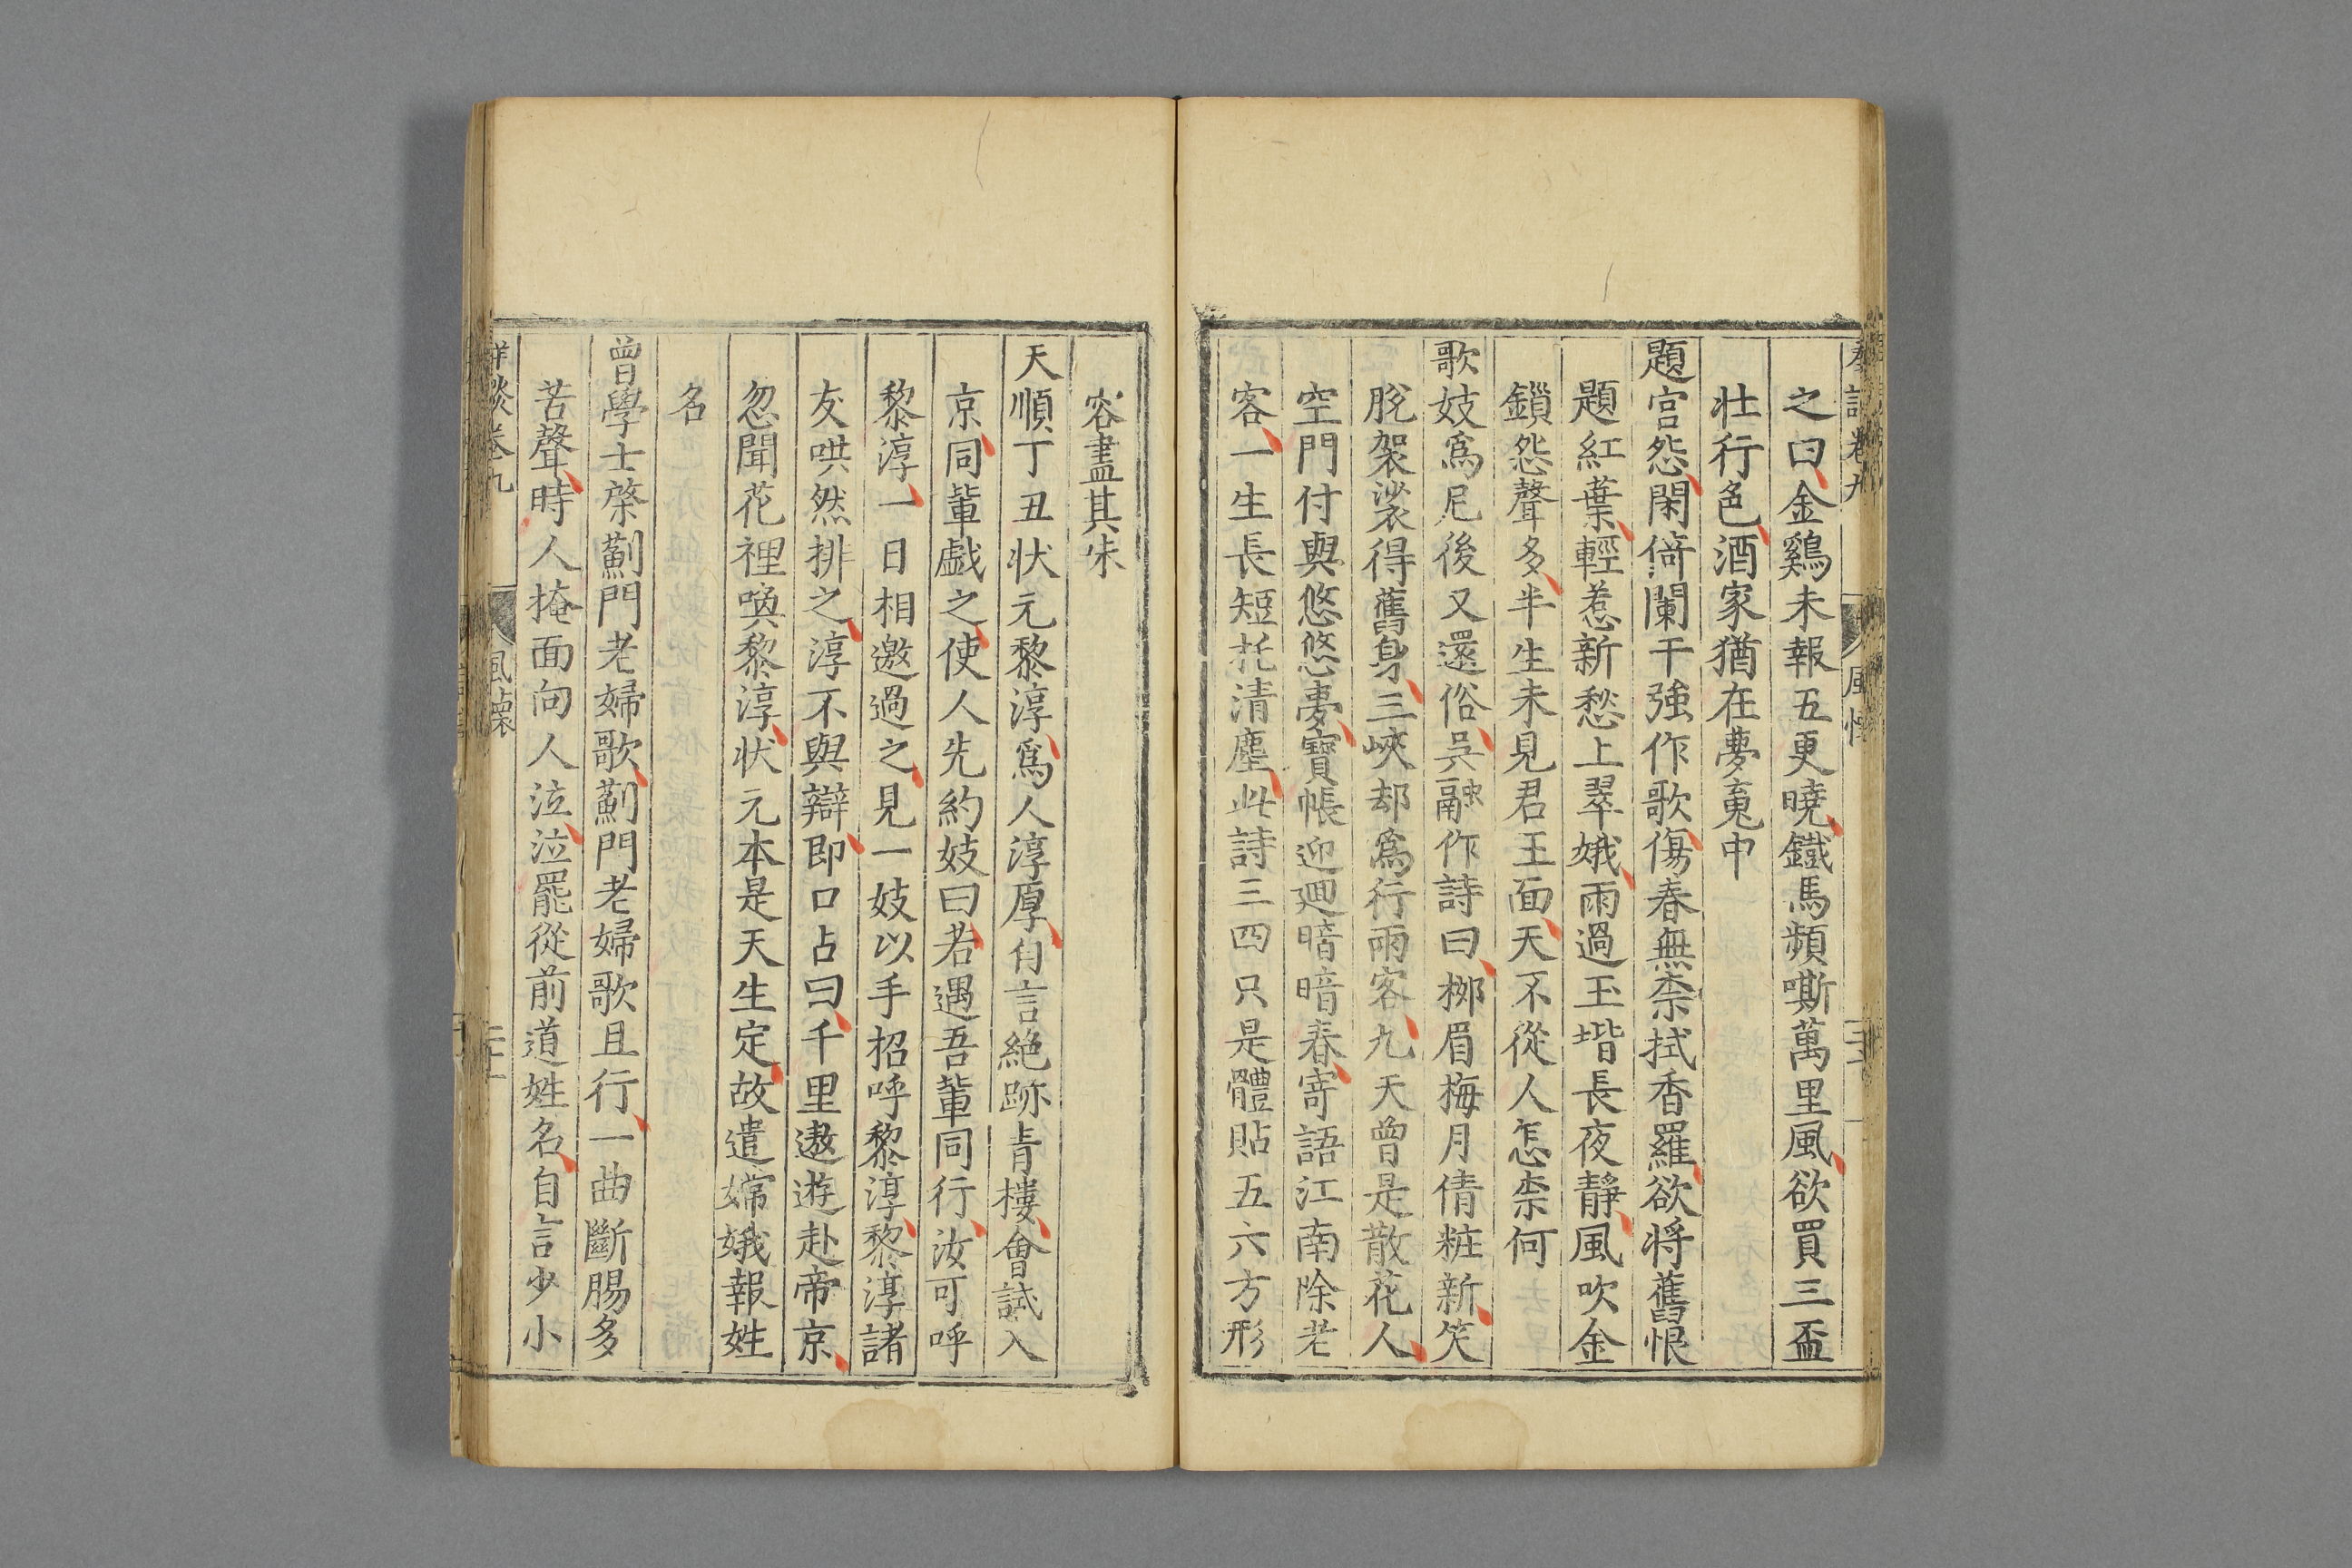 之曰金鷄未報五更曉鐵馬頻嘶萬里風欲買三盃
壯行色酒家猶在夢䰟中
題宮怨閑倚闌干強作歌傷春無柰拭香羅欲将舊恨
題紅葉輕惹新愁上翠娥雨過玉堦長夜靜風吹金
鎖怨聲多半生未見君王面天不從人怎柰何
歌妓爲尼後又還俗吳融作詩曰栁眉梅月倩粧新笑
脫袈裟得舊身三峽却爲行雨客九天曾是散花人
空門付與悠悠夢寶帳迎迴暗暗春寄語江南除老
客一生長短托清塵此詩三四只是體貼五六方形
容盡其味
天順丁丑状元黎淳爲人淳厚自言絶跡青樓會試入
京同輩戯之使人先約妓曰若遇吾輩同行汝可呼
黎淳一日相邀過之見一妓以手招呼黎淳黎淳諸
友哄然排之淳不與辯即口占曰千里遨遊赴帝京
忽聞花裡喚黎淳状元本是天生定故遣嫦娥報姓
名
曾學士棨薊門老婦歌薊門老婦歌且行一曲斷腸多
苦聲時人掩面向人泣泣罷從前道姓名自言少小
談卷九
風懷